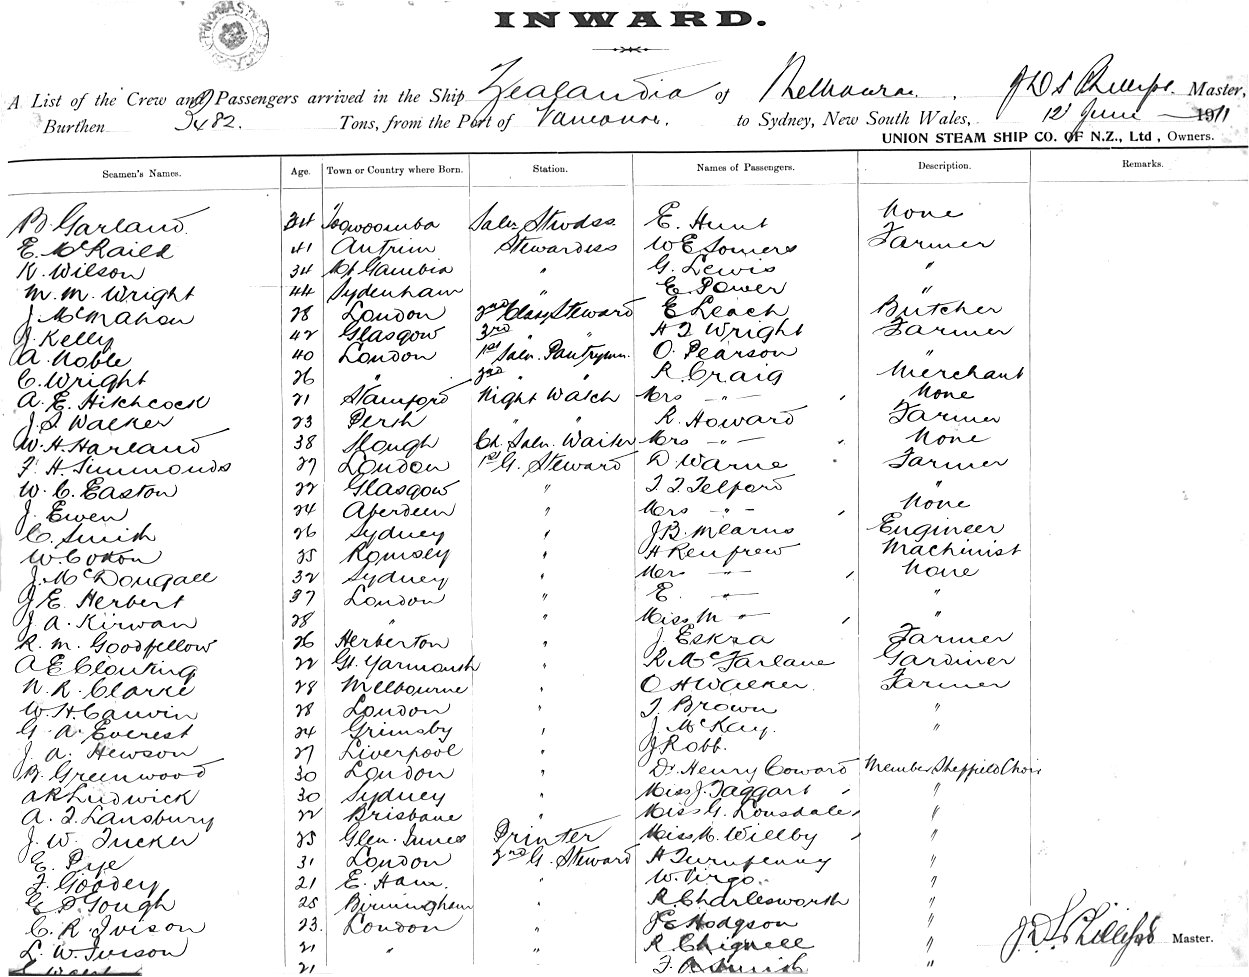 INWARD.
A List of the Crew and Passengers arrived in the Ship Zealandia of Melbourne. J D S Phillips Master,
Burthen 3482. Tons, from the Port of Vancouver. to Sydney, New South Wales, 12 June 1911
UNION STEAM SHIP CO. OF N.Z., Ltd, Owners.
Seamen's Names. Age. Town or Country where Born. Station. Names of Passengers. Description. Remarks.
B. Garland 34 Toowoomba Saln. Stwdss E. Hunt None
E. McKaild 41 Antrim Stewardess W E Somers Farmer
K. Wilson 34 Mt Gambia " G. Lewis "
M. M. Wright 44 Sydenham " E. Power "
J. McMahon 28 London 2nd Class Steward E Leach Butcher
J. Kelly 42 Glasgow 3rd " " H J Wright Farmer
A. Noble 40 London 1st Saln. Pantrymn. O. Pearson "
C. Wright 26 " 2nd " " R. Craig Merchant
A. E. Hitchcock 21 Stamford Night Watch Mrs - " - None
J. S. Walker 23 Perth " " R. Howard Farmer
W. H. Harland 38 Slough Ch. Saln. Waiter Mrs - " - None
F. H. Simmonds 27 London 1st G. Steward D Warne Farmer
W. C. Easton 22 Glasgow " J. J. Telford "
J. Ewen 24 Aberdeen " Mrs - " - None
C. Smith 26 Sydney " J. B. Mearns Engineer
W. Cotton 25 Romsey " H Renfrew Machinist
J. McDougall 32 Sydney " Mrs - " - None
J. E. Herbert 37 London " E. - " - "
J. A. Kirwan 28 " " Miss M - " - "
R. M. Goodfellow 26 Herberton " J. Eskra Farmer
A E Clouting 22 Gt. Yarmouth " R. McFarlane Gardiner
N. R. Clarke 28 Melbourne " O H Walker Farmer
W. H. Canvin 28 London " J Brown "
G. A. Everest 24 Grimsby " J. McKay. "
J. A. Hewson 27 Liverpool " J Robb.
B. Greenwood 30 London " Dr Henry Coward Member Sheffield Choir
A R Ludwick 30 Sydney " Miss J. Taggart "
A. J. Lansbury 22 Brisbane " Miss G. Lonsdale "
J. W. Tucker 25 Glen Innes Printer Miss M. Willby "
E. Pye 31 London 2nd G. Steward H Turnpenny "
F. Goodey 21 E. Ham. " W. Virgo "
E P Gough 25 Birmingham " R. Charlesworth "
C. R. Ivison 23. London " J E Hodgson "
L. W. Iveson 21 " " R. Chignell "
21 F. A Smith "
J. D. S. Phillips Master.